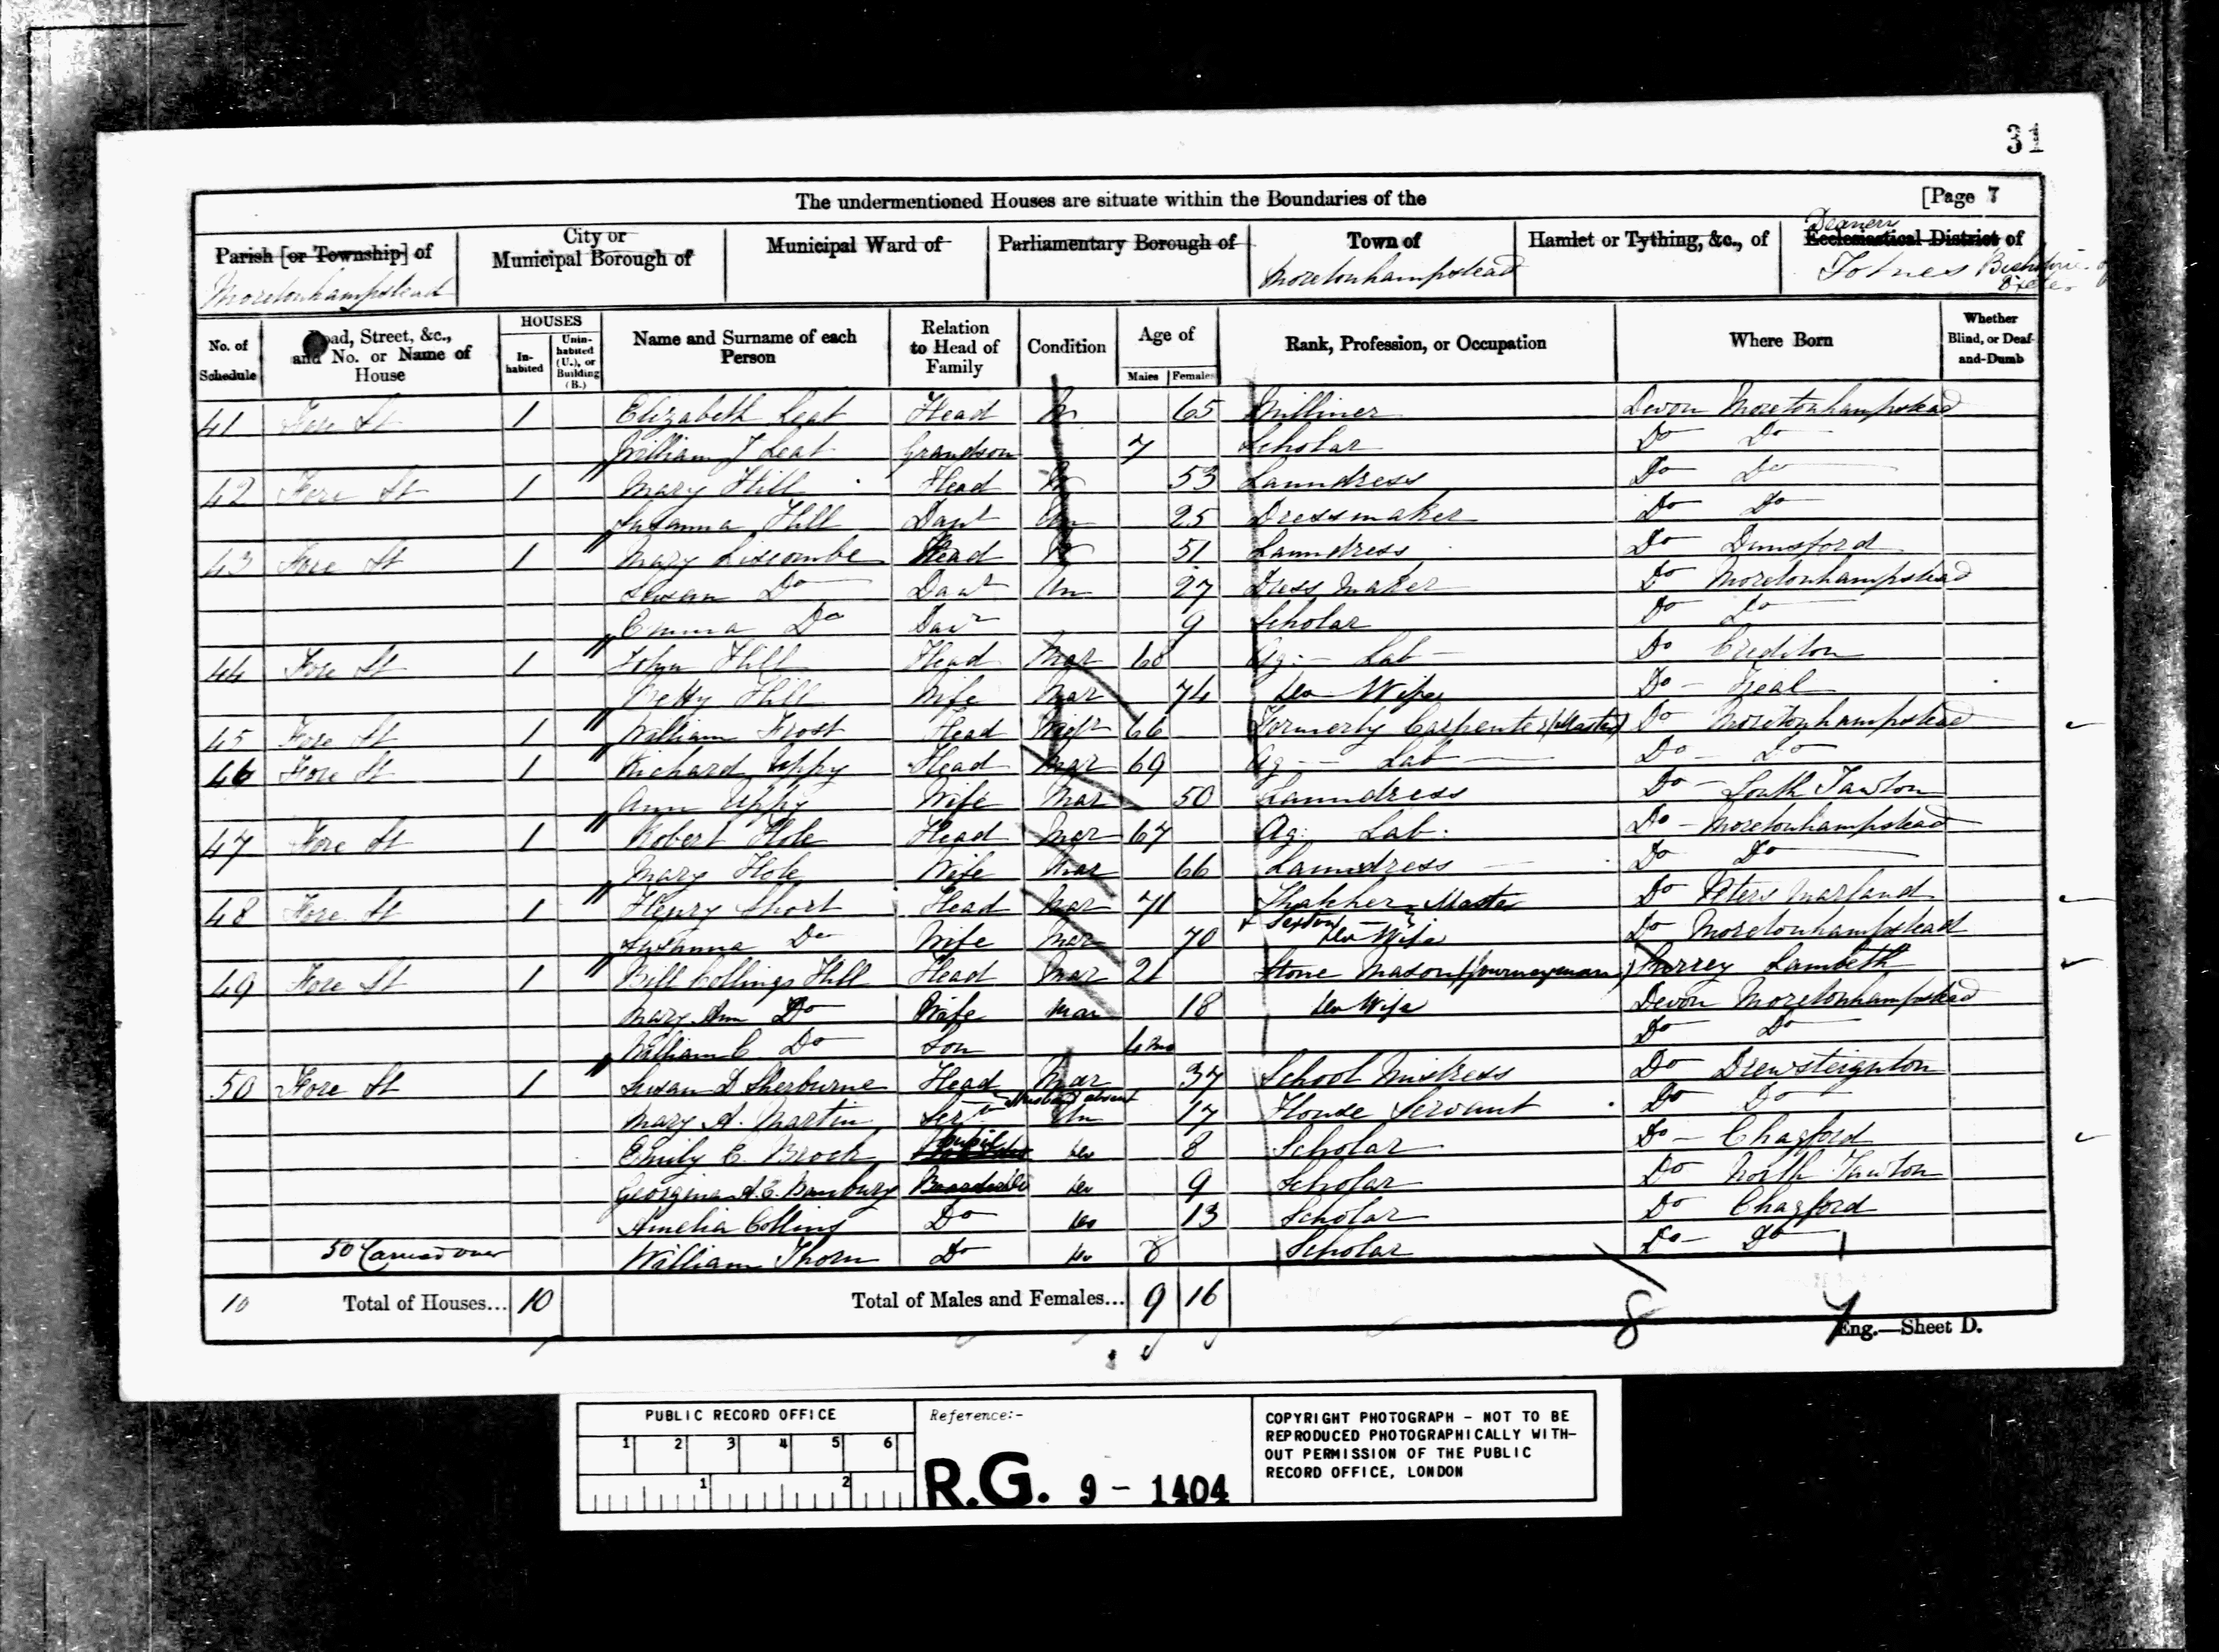 31
The undermentioned Houses are situate within the Boundaries of the [Page 7
Parish [or Township] of Moretonhampstead
City or Municipal Borough of
Municipal Ward of
Parliamentary Borough of
Town of Moretonhampstead
Hamlet or Tything, &c., of
Deanery Ecclesiastical District of Totnes
No. of Schedule
Road, Street, &c., and No. or Name of House
HOUSES
In-habited
Unin-habited (U.), or Building (B.)
Name and Surname of each Person
Relation to Head of Family
Condition
Age of
Males Females
Rank, Profession, or Occupation
Where Born
Whether Blind, or Deaf-and-Dumb
41 Fore St 1 Elizabeth Leat Head 65 Milliner Devon Moretonhampstead
William J Leat Grandson 7 Scholar Do Do
42 Fore St 1 Mary Hill Head 53 Laundress Do Do
Susanna Hill Daur Un 25 Dressmaker Do Do
43 Fore St 1 Mary Liscombe Head 51 Laundress Do Dunsford
Susan Do Daur Un 27 Dress Maker Do Moretonhampstead
Emma Do Daur 9 Scholar Do Do
44 Fore St 1 John Hill Head Mar Ag: Lab Do Crediton
Betty Hill Wife Mar 74 Do Wife Do
45 Fore St 1 William Frost Head Widr 66 Formerly Carpenter (Master) Do Moretonhampstead
46 Fore St 1 Richard Uppy Head Mar 69 Ag Lab Do Do
Ann Uppy Wife Mar 50 Laundress Do South Tawton
47 Fore St 1 Robert Hole Head Mar 67 Ag: Lab: Do Moretonhampstead
Mary Hole Wife Mar 66 Laundress Do Do
48 Fore St 1 Henry Short Head Mar 71 Thatcher Master Do Peters Marland
+ Sexton
Susanna Do Wife Mar 70 Do Wife Do Moretonhampstead
49 Fore St 1 Bill Collings Hill Head Mar 21 Stone Mason (Journeyman) Surrey Lambeth
Mary Ann Do Wife Mar 18 Do Wife Devon Moretonhampstead
William C Do Son Do Do
50 Fore St 1 Susan D Sherburne Head Mar 37 School Mistress Do Drewsteignton
Husband absent
Mary A. Martin Serv Un 17 House Servant Do Do
Emily C. Brock Do 8 Scholar Do Chagford
Georgina A. E. Banbury Boarder Do 9 Scholar Do North Tawton
Amelia Collins Do Do 13 Scholar Do Chagford
50 Carried over William Thorn Do Do 8 Scholar Do Do
10 Total of Houses... 10 Total of Males and Females... 9 16
8 7
Eng.—Sheet D.
PUBLIC RECORD OFFICE
1 2 3 4 5 6
1 2
Reference:-
R.G. 9 - 1404
COPYRIGHT PHOTOGRAPH - NOT TO BE
REPRODUCED PHOTOGRAPHICALLY WITH-
OUT PERMISSION OF THE PUBLIC
RECORD OFFICE, LONDON